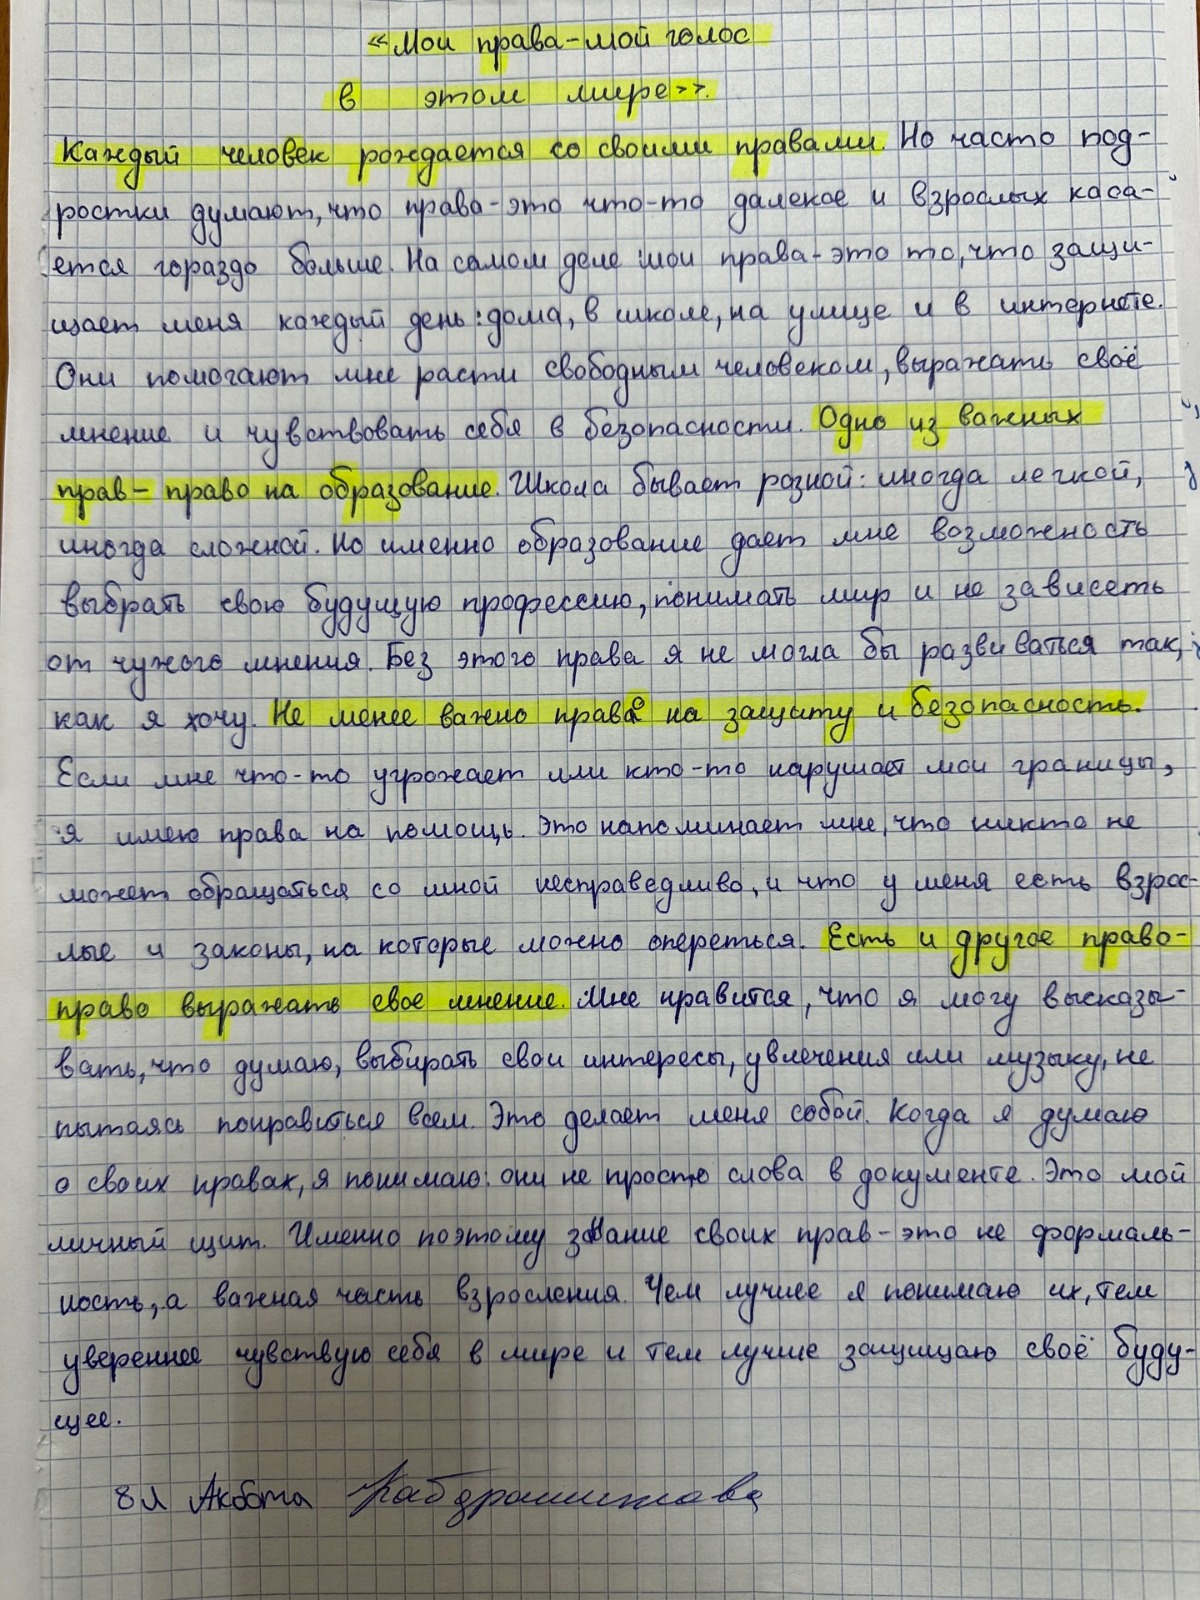 «Мои права-мой голос
в этом мире».
Каждый человек рождается со своими правами. Но часто под-
ростки думают, что права-это что-то далекое и взрослых каса-
ется гораздо больше. На самом деле мои права-это то, что защи-
щает меня каждый день: дома, в школе, на улице и в интернете.
Они помогают мне расти свободным человеком, выражать своё
мнение и чувствовать себя в безопасности. Одно из важных
прав- право на образование. Школа бывает разной: иногда легкой,
иногда сложной. Но именно образование дает мне возможность
выбрать свою будущую профессию, понимать мир и не зависеть
от чужого мнения. Без этого права я не могла бы развиваться так,
как я хочу. Не менее важно право на защиту и безопасность.
Если мне что-то угрожает или кто-то нарушает мои границы,
я имею права на помощь. Это напоминает мне, что никто не
может обращаться со мной несправедливо, и что у меня есть взрос-
лые и законы, на которые можно опереться. Есть и другое право-
право выражать свое мнение. Мне нравится, что я могу высказы-
вать, что думаю, выбирать свои интересы, увлечения или музыку, не
пытаясь понравиться всем. Это делает меня собой. Когда я думаю
о своих правах, я понимаю: они не просто слова в документе. Это мой
личный щит. Именно поэтому знание своих прав-это не формаль-
ность, а важная часть взросления. Чем лучше я понимаю их, тем
увереннее чувствую себя в мире и тем лучше защищаю своё буду-
щее.
8Л Акбота